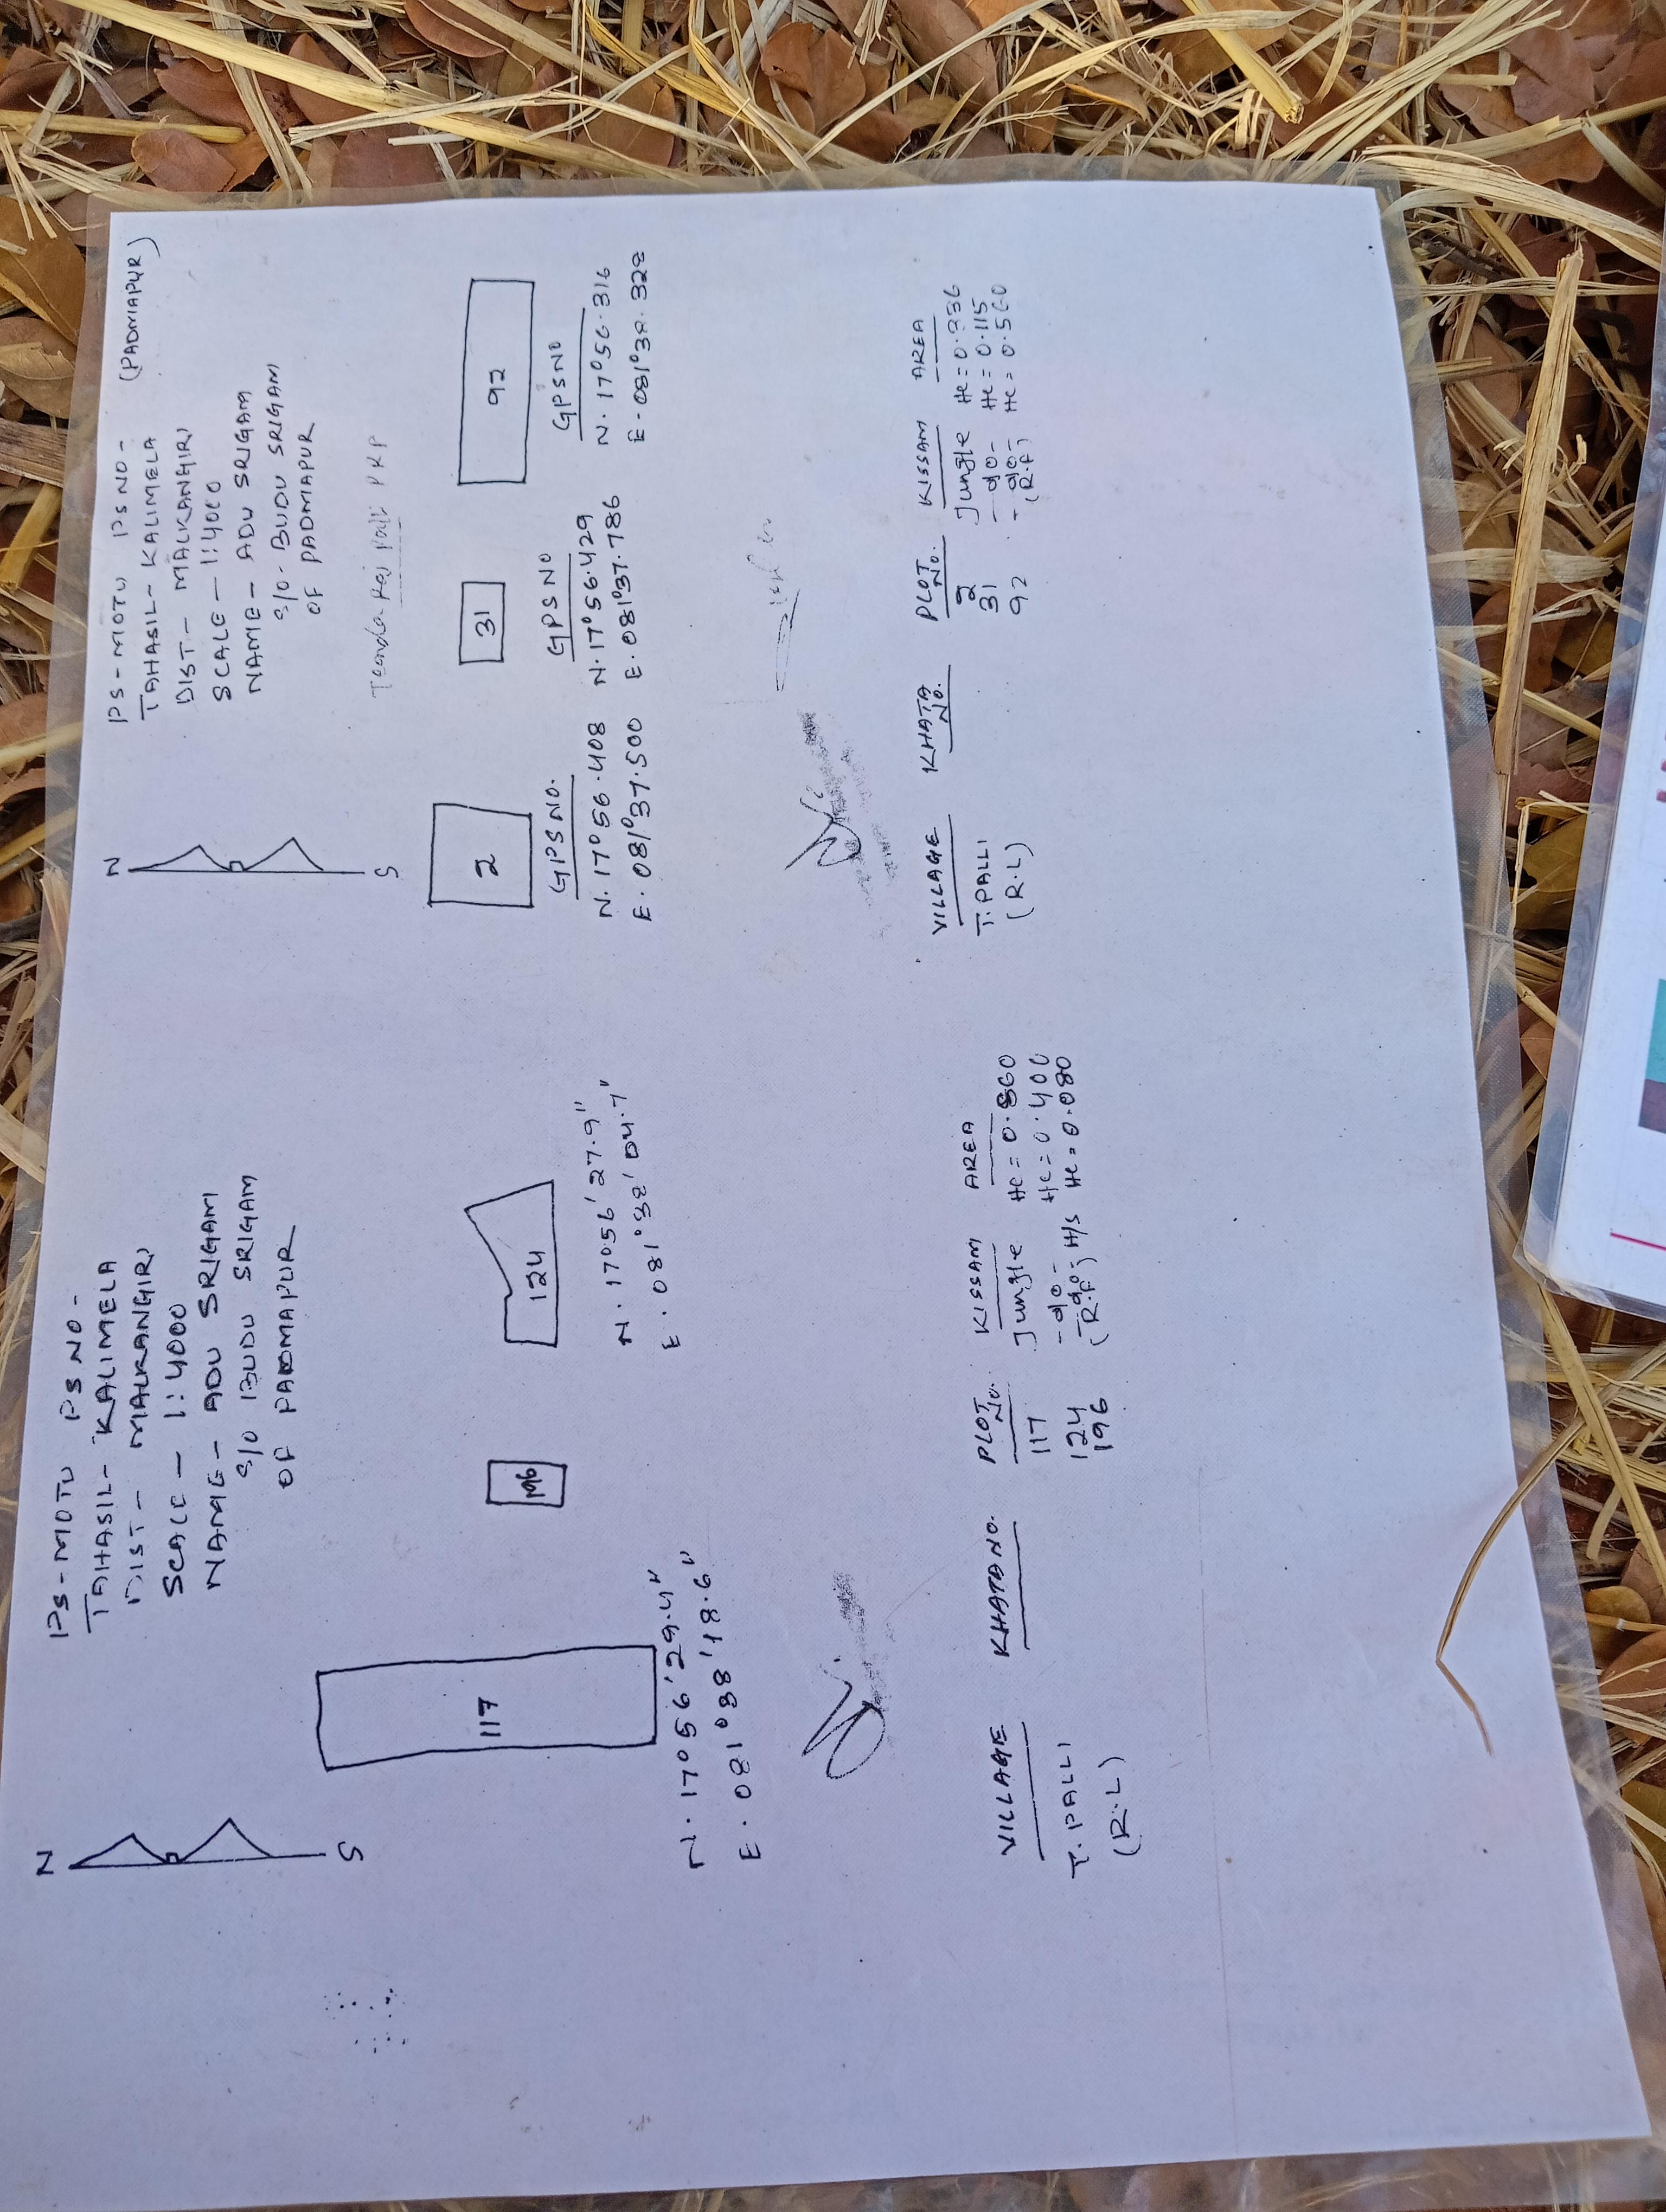 PS - MOTU PS NO -
TAHASIL - KALIMELA
DIST - MALKANGIRI
SCALE - 1:4000
NAME - ADU SRIGAM
S/O BUDU SRIGAM
OF PADMAPUR
N
S
117
196
124
N. 17°56'29.4"
E. 081°38'18.6"
N. 17°56'27.9"
E. 081°38'04.7"
VILLAGE KHATA NO. PLOT No. KISSAM AREA
T. PALLI 117 Jungle Hc = 0.860
(R.L) 124 -do- Hc = 0.400
196 -do- H/S Hc = 0.080
(R.F)
(PADMAPUR)
PS - MOTU PS NO -
TAHASIL - KALIMELA
DIST - MALKANGIRI
SCALE - 1:4000
NAME - ADU SRIGAM
S/O - BUDU SRIGAM
OF PADMAPUR
N
S
2
31
92
GPS NO. GPS NO GPS NO
N. 17°56.408 N. 17°56.429 N. 17°56.316
E. 081°37.500 E. 081°37.786 E. 081°38.328
VILLAGE KHATA No. PLOT No. KISSAM AREA
T. PALLI 2 Jungle Hc = 0.336
(R.L) 31 -do- Hc = 0.115
92 -do- Hc = 0.560
(R.F)